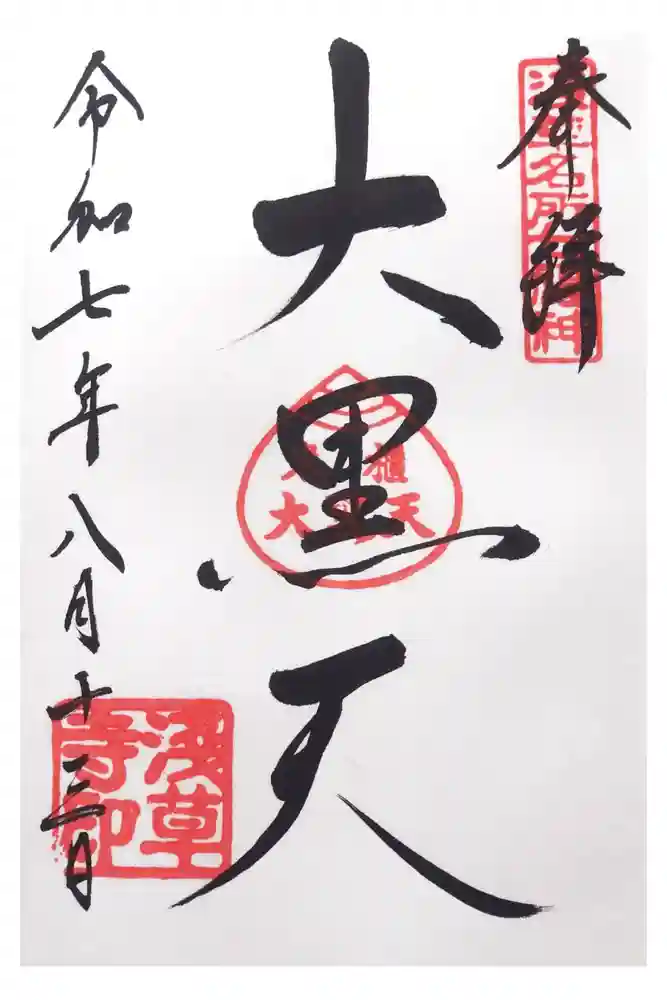 奉拝
浅草名所七福神
大黒天
米櫃
大黒天
令和七年八月十三日
浅草
寺印